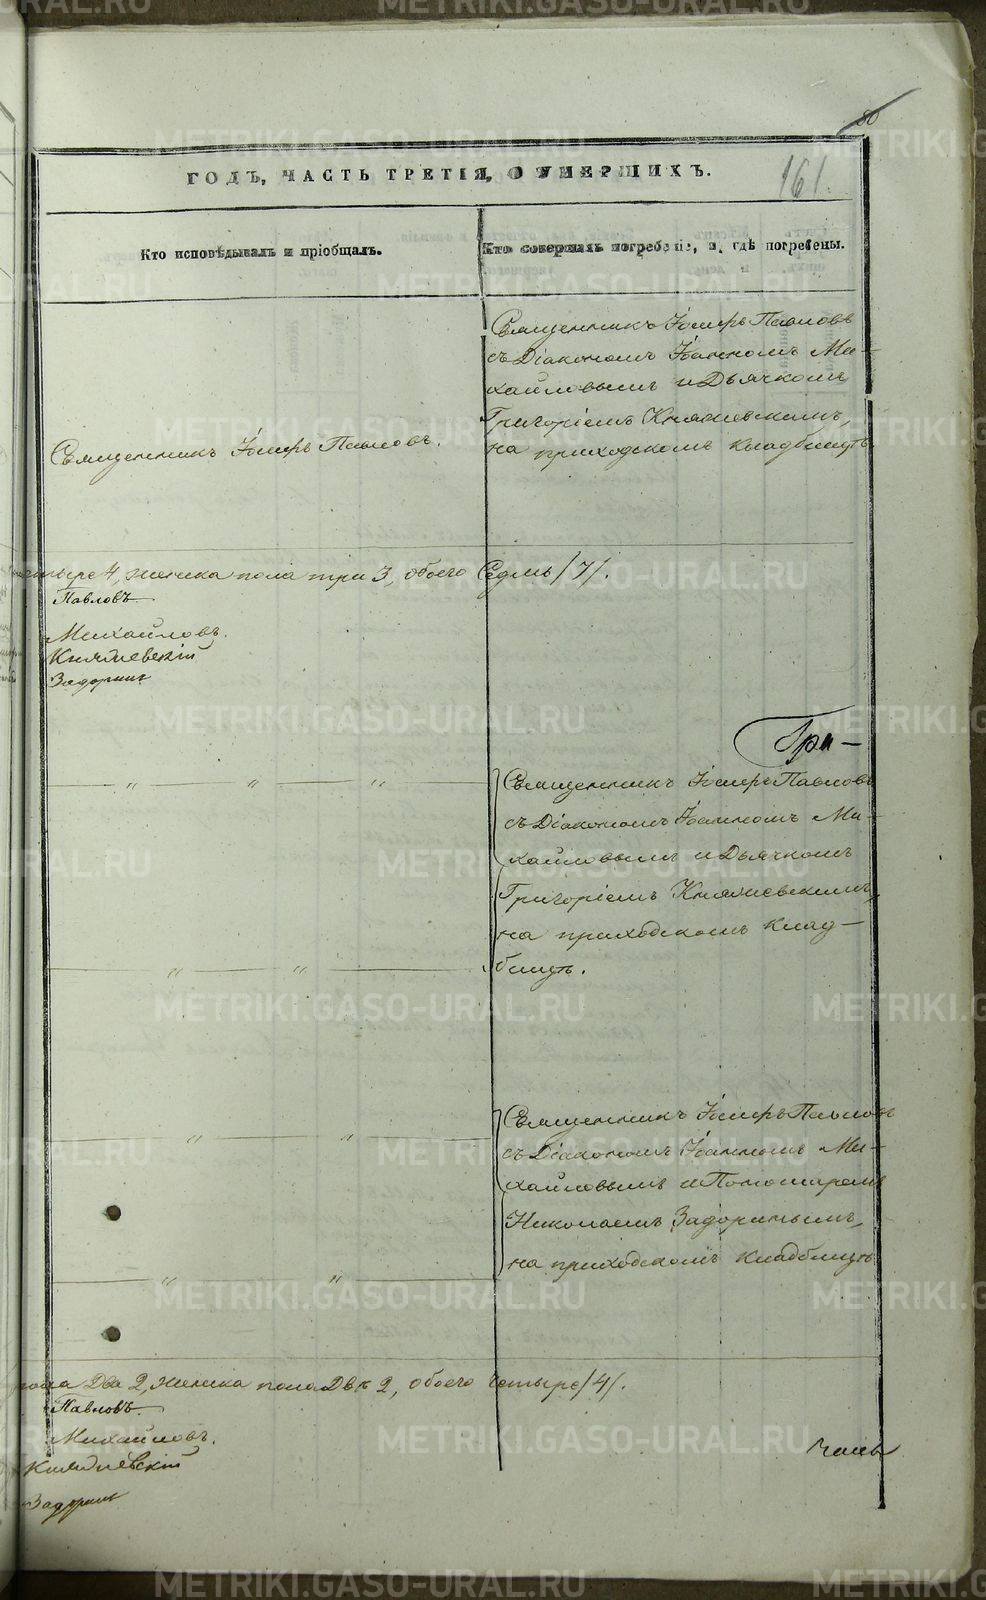 80
161.
ГОДЪ, ЧАСТЬ ТРЕТІЯ, О УМЕРШИХЪ.
Кто исповѣдывалъ и пріобщалъ.
Кто совершалъ погребеніе, и гдѣ погребены.
Священникъ Іосифъ Павловъ.
Священникъ Іосифъ Павловъ
съ Діакономъ Іоанномъ Ми-
хайловымъ и Дьячкомъ
Григоріемъ Княжевскимъ,
на приходскомъ кладбищѣ
четыре 4, женска пола три 3, обоего Седмь /7/.
Павловъ
Михайловъ.
Княжевскій
Задоринъ
Гри-
Священникъ Іосифъ Павловъ
съ Діакономъ Іоанномъ Ми-
хайловымъ и Дьячкомъ
Григоріемъ Княжевскимъ,
на приходскомъ клад-
бищѣ.
Священникъ Іосифъ Павловъ
съ Діакономъ Іоанномъ Ми-
хайловымъ и Пономаремъ
Николаемъ Задоринымъ,
на приходскомъ кладбищѣ
пола Два 2, женска пола Двѣ 2, обоего Четыре /4/.
Павловъ.
Михайловъ.
Княжевскій
Задоринъ
METRIKI.GASO-URAL.RU